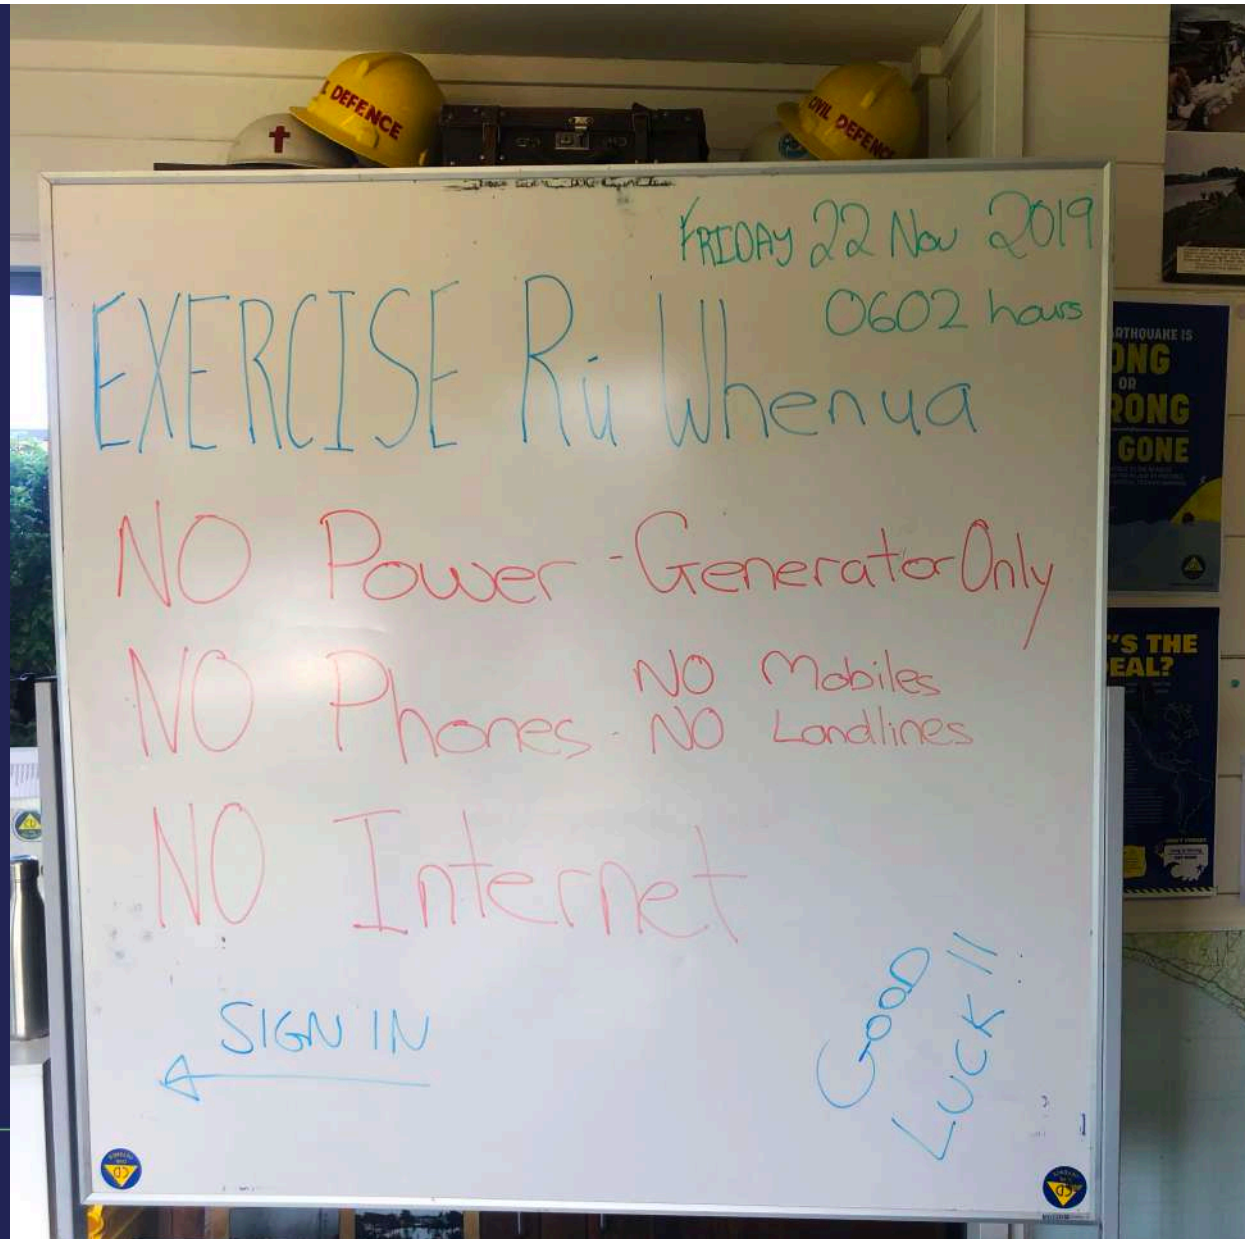 DEFENCE
CIVIL DEFENCE
FRIDAY 22 Nov 2019
0602 hours
EXERCISE Rū Whenua
NO Power - Generator Only
NO Phones - NO Mobiles
NO Landlines
NO Internet
SIGN IN
GOOD
LUCK !!
RTHQUAKE IS
ONG
OR
RONG
GONE
'S THE
EAL?
CD
CD